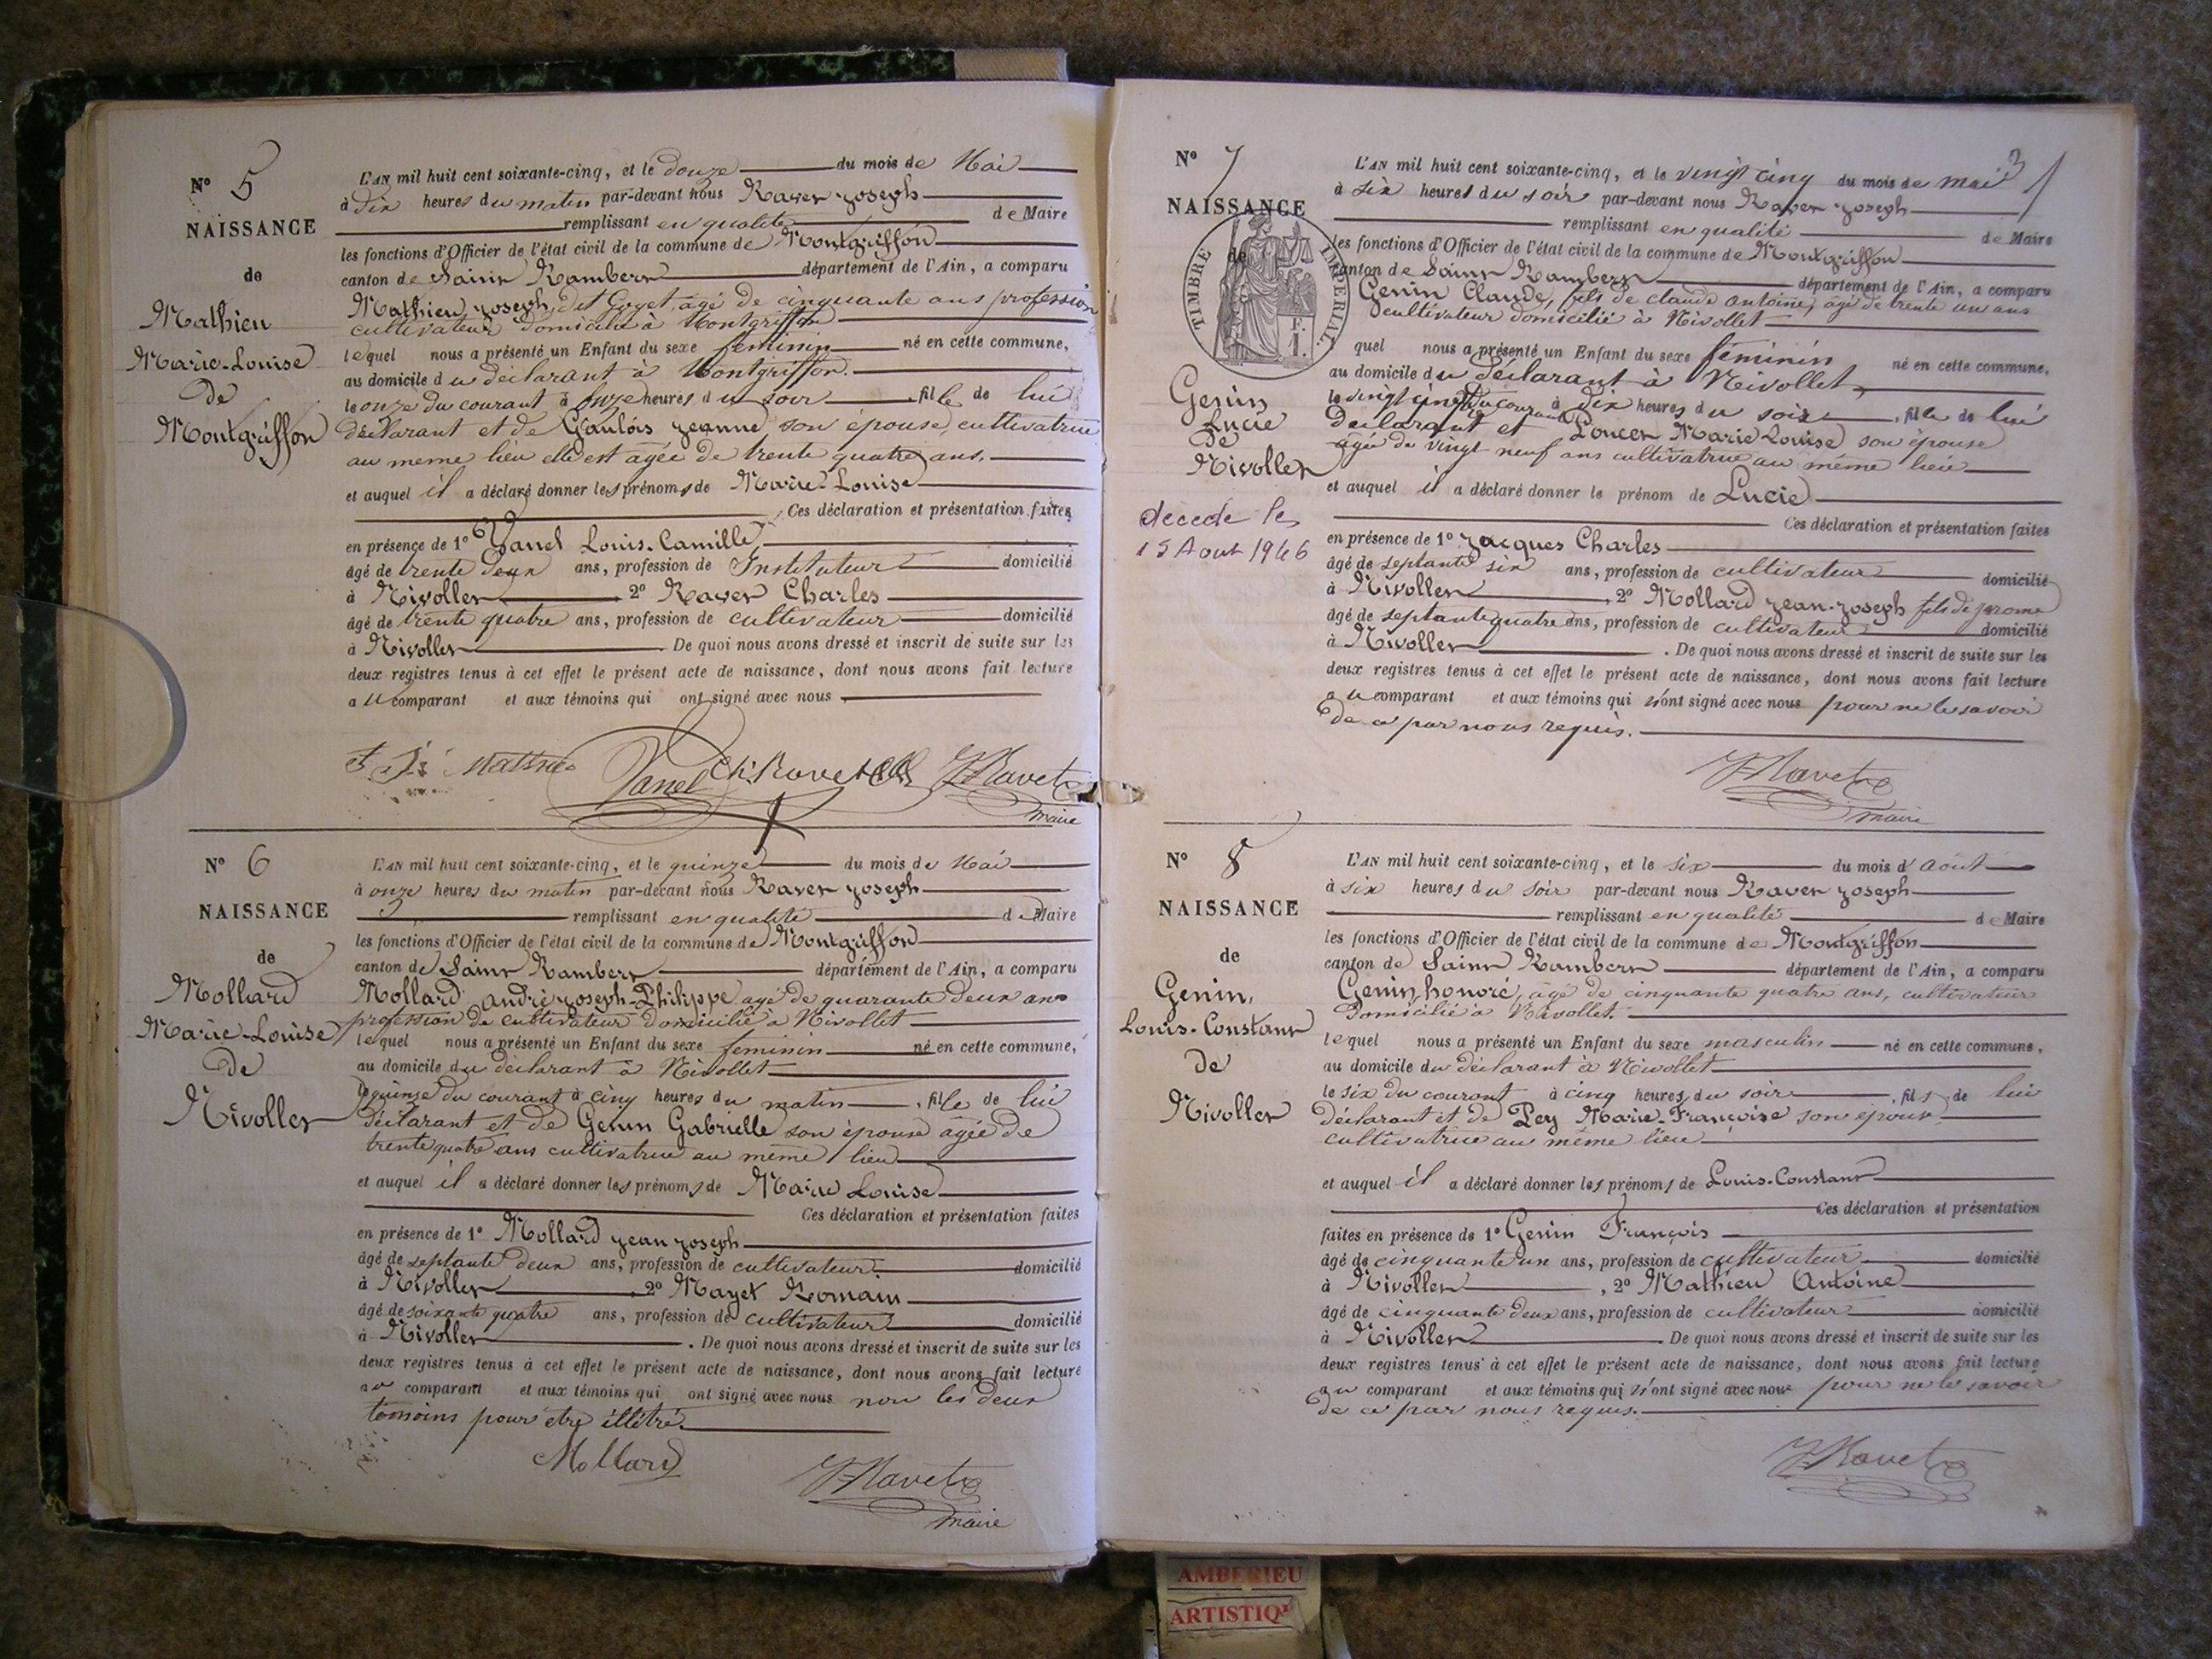 N° 5
NAISSANCE
de
Mathieu
Marie-Louise
de
Montgriffon
L'AN mil huit cent soixante-cinq, et le douze du mois de Mai
à dix heures du matin par-devant nous Ravet Joseph
remplissant en qualité de Maire
les fonctions d'Officier de l'état civil de la commune de Montgriffon
canton de Saint Rambert département de l'Ain, a comparu
Mathieu Joseph, dit Goyet, agé de cinquante ans profession
cultivateur domicilié à Montgriffon
lequel nous a présenté un Enfant du sexe feminin né en cette commune,
au domicile du déclarant à Montgriffon.
le onze du courant à onze heures du soir, fille de lui
déclarant et de Gaulois Jeanne son épouse, cultivatrice
au meme lieu elle est agée de trente quatre ans.
et auquel il a déclaré donner les prénoms de Marie-Louise
Ces déclaration et présentation faites
en présence de 1° Vanel Louis-Camille
âgé de trente deux ans, profession de Instituteur domicilié
à Nivollet 2° Ravet Charles
âgé de trente quatre ans, profession de cultivateur domicilié
à Nivollet. De quoi nous avons dressé et inscrit de suite sur les
deux registres tenus à cet effet le présent acte de naissance, dont nous avons fait lecture
au comparant et aux témoins qui ont signé avec nous.
Vanel Ch. Ravet J Ravet
maire
N° 6
NAISSANCE
de
Mollard
Marie-Louise
de
Nivollet
L'AN mil huit cent soixante-cinq, et le quinze du mois de Mai
à onze heures du matin par-devant nous Ravet Joseph
remplissant en qualité de Maire
les fonctions d'Officier de l'état civil de la commune de Montgriffon
canton de Saint Rambert département de l'Ain, a comparu
Mollard andré Joseph-Philippe agé de quarante deux ans
profession de cultivateur domicilié à Nivollet
lequel nous a présenté un Enfant du sexe feminin né en cette commune,
au domicile du déclarant à Nivollet
le quinze du courant à cinq heures du matin, fille de lui
déclarant et de Genin Gabrielle son épouse agée de
trente quatre ans cultivatrice au même lieu
et auquel il a déclaré donner les prénoms de Marie Louise
Ces déclaration et présentation faites
en présence de 1° Mollard Jean Joseph
âgé de septante deux ans, profession de cultivateur domicilié
à Nivollet, 2° Mayet Romain
âgé de soixante quatre ans, profession de cultivateur domicilié
à Nivollet. De quoi nous avons dressé et inscrit de suite sur les
deux registres tenus à cet effet le présent acte de naissance, dont nous avons fait lecture
au comparant et aux témoins qui ont signé avec nous non les deux
temoins pour etre illétré.
Mollard J Ravet
maire
3
N° 7
NAISSANCE
de
TIMBRE IMPÉRIAL
F.
1.
Genin
Lucie
de
Nivollet
décédé le
15 Aout 1946
L'AN mil huit cent soixante-cinq, et le vingt cinq du mois de mai
à six heures du soir par-devant nous Ravet Joseph
remplissant en qualité de Maire
les fonctions d'Officier de l'état civil de la commune de Montgriffon
canton de Saint Rambert département de l'Ain, a comparu
Genin Claude, fils de claude antoine, agé de trente un ans
cultivateur domicilié à Nivollet
quel nous a présenté un Enfant du sexe féminin né en cette commune,
au domicile du déclarant à Nivollet
le vingt cinq du courant à dix heures du soir, fille de lui
déclarant et Poncet Marie Louise son épouse
agée de vingt neuf ans cultivatrice au même lieu
et auquel il a déclaré donner le prénom de Lucie
Ces déclaration et présentation faites
en présence de 1° Jacques Charles
âgé de septante six ans, profession de cultivateur domicilié
à Nivollet, 2° Mollard Jean-Joseph fils de jerome
âgé de septante quatre ans, profession de cultivateur domicilié
à Nivollet. De quoi nous avons dressé et inscrit de suite sur les
deux registres tenus à cet effet le présent acte de naissance, dont nous avons fait lecture
au comparant et aux témoins qui n'ont signé avec nous pour ne le savoir
de ce par nous requis.
J Ravet
maire
N° 8
NAISSANCE
de
Genin,
Louis-Constant
de
Nivollet
L'AN mil huit cent soixante-cinq, et le six du mois d'août
à six heures du soir par-devant nous Ravet Joseph
remplissant en qualité de Maire
les fonctions d'Officier de l'état civil de la commune de Montgriffon
canton de Saint Rambert département de l'Ain, a comparu
Genin, honoré, agé de cinquante quatre ans, cultivateur
domicilié à Nivollet.
lequel nous a présenté un Enfant du sexe masculin né en cette commune,
au domicile du déclarant à Nivollet
le six du courant à cinq heures du soir, fils de lui
déclarant et de Pey Marie-Françoise son épouse
cultivatrice au même lieu
et auquel il a déclaré donner les prénoms de Louis-Constant
Ces déclaration et présentation
faites en présence de 1° Genin François
âgé de cinquante un ans, profession de cultivateur domicilié
à Nivollet, 2° Mathieu Antoine
âgé de cinquante deux ans, profession de cultivateur domicilié
à Nivollet. De quoi nous avons dressé et inscrit de suite sur les
deux registres tenus à cet effet le présent acte de naissance, dont nous avons fait lecture
au comparant et aux témoins qui n'ont signé avec nous pour ne le savoir
de ce par nous requis.
J Ravet
AMBERIEU
ARTISTIQ